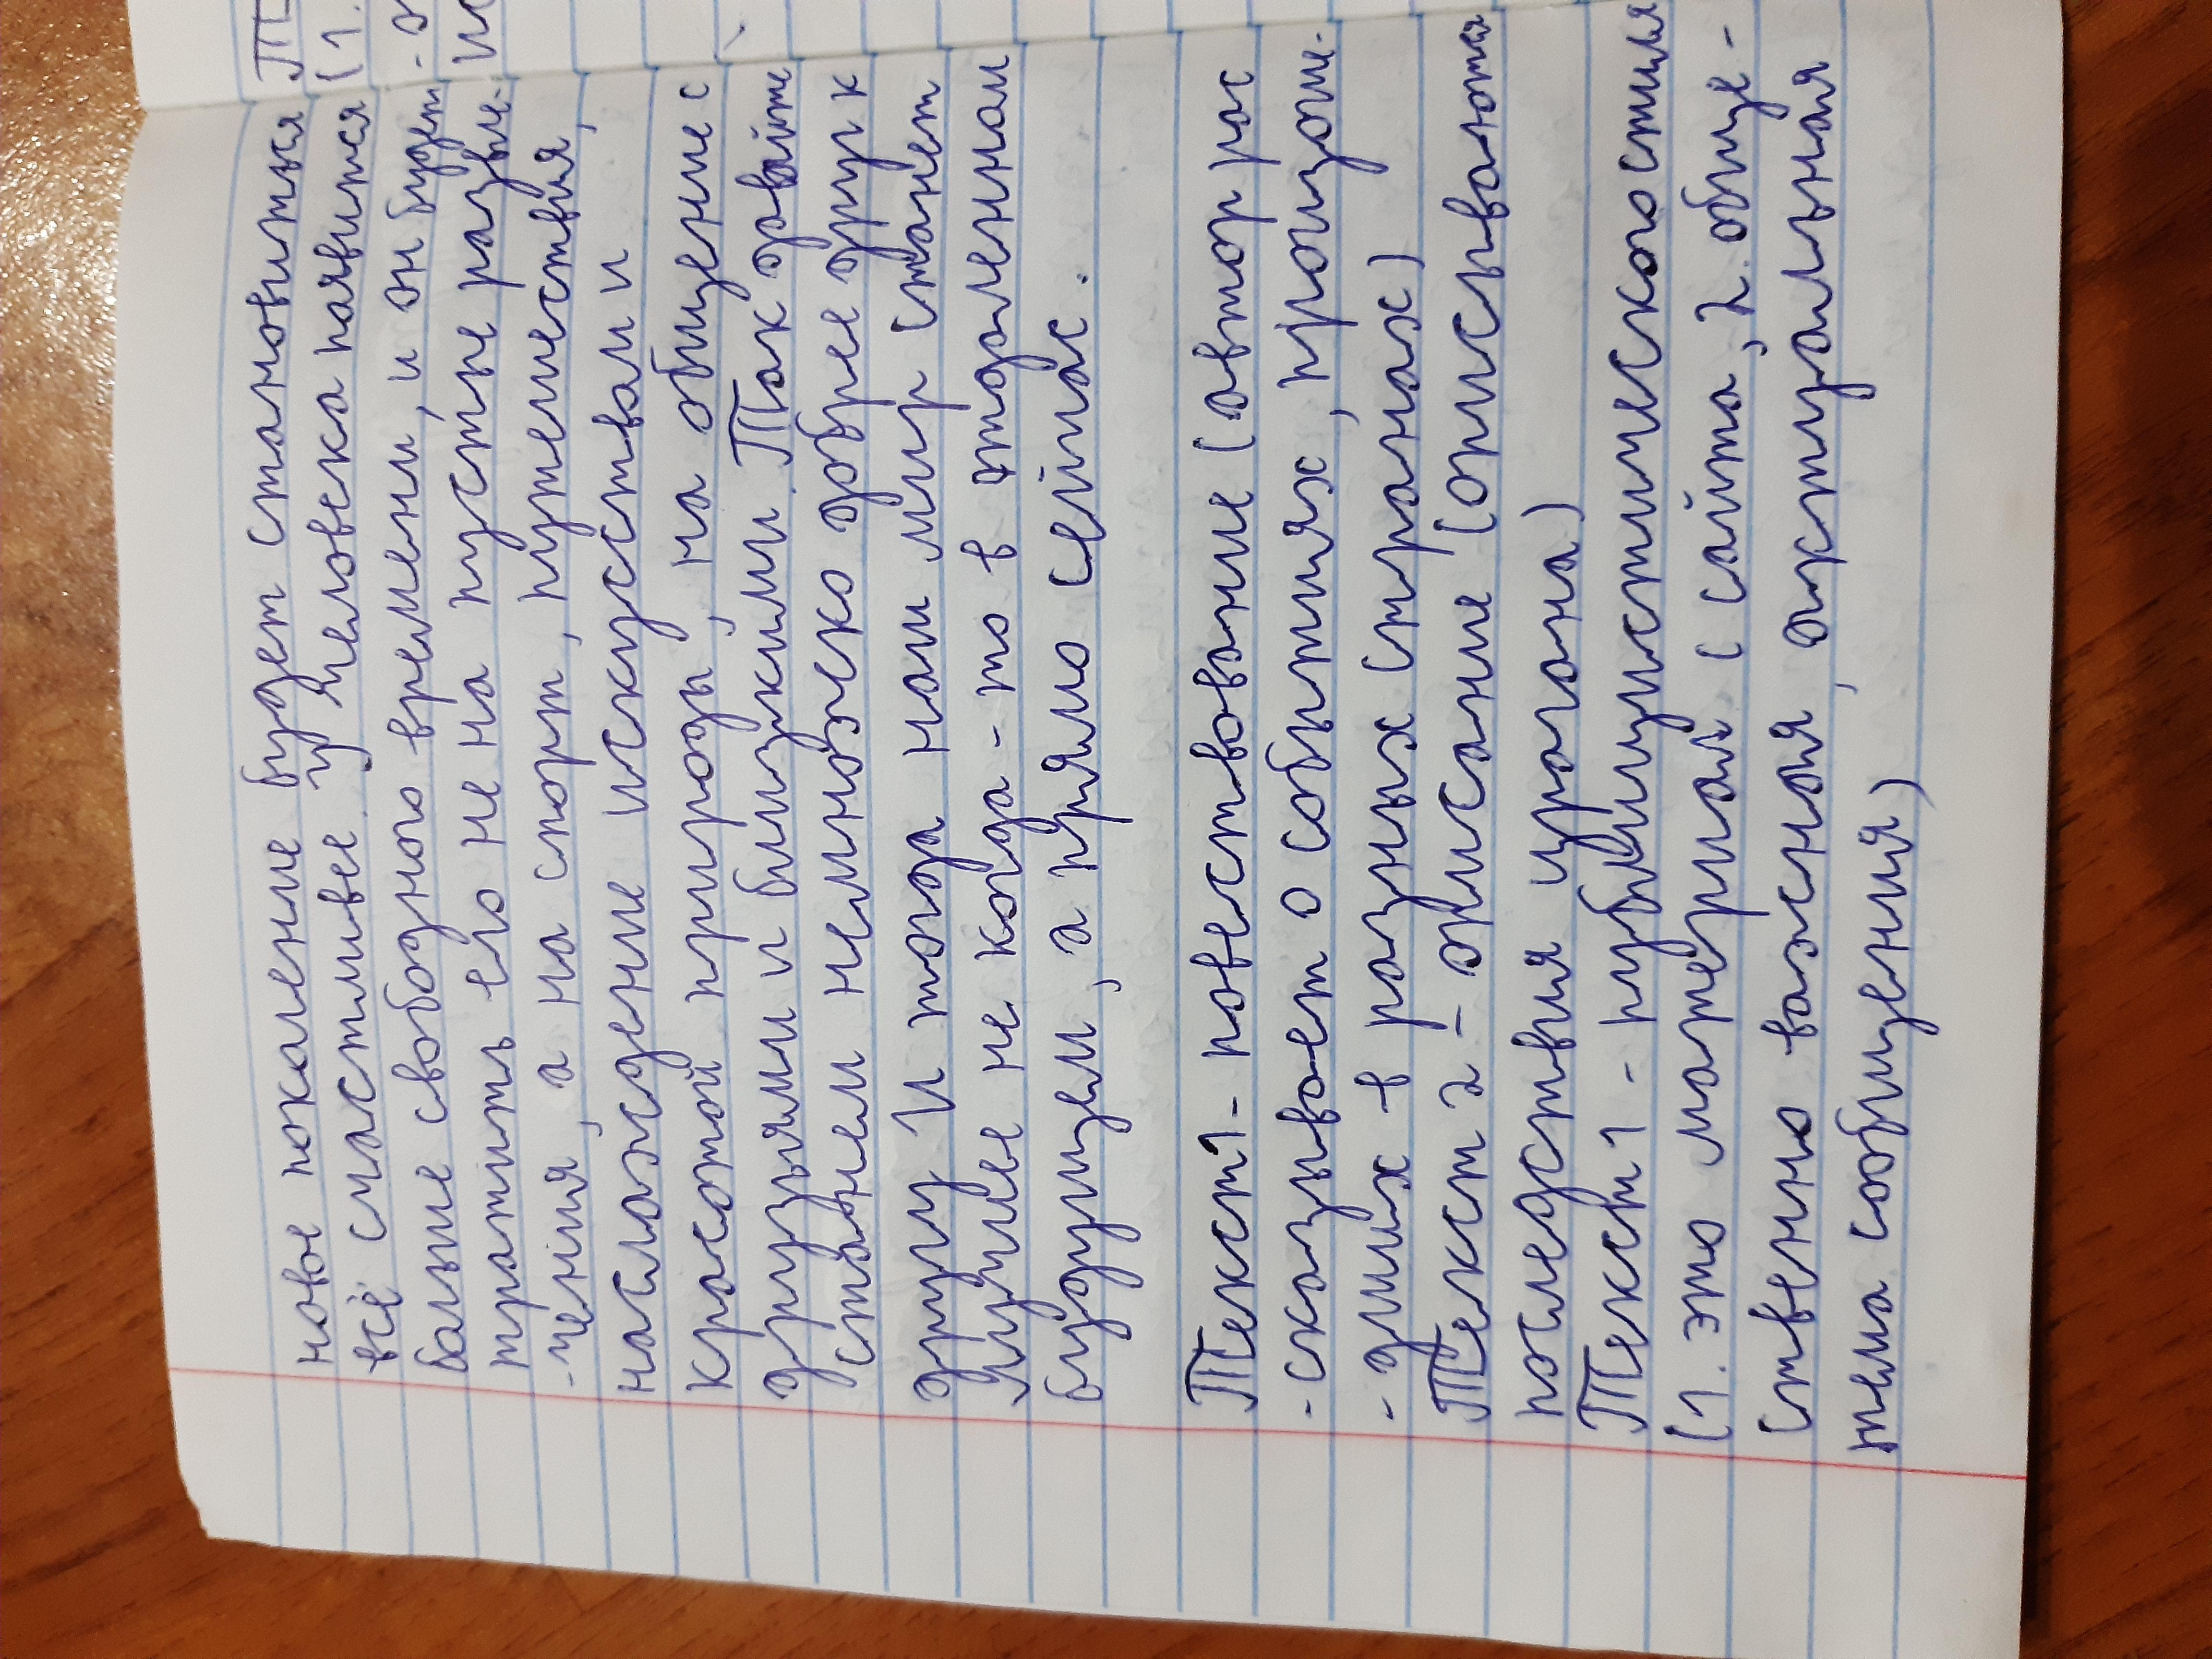 новое поколение будет становиться
всё счастливее. У человека появится
больше свободного времени, и он будет
тратить его не на пустые развле-
-чения, а на спорт, путешествия,
наслаждение искусствами и
красотой природы, на общение с
друзьями и близкими. Так давайте
станем немножко добрее друг к
другу И тогда наш мир станет
лучшее не когда-то в отдаленном
будущем, а прямо сейчас.
Текст1- повествование (автор рас
-сказывает о событиях, произош-
-эших в разных странах)
Текст 2 – описание (описываются
последствия урагана)
Текст 1 - публицистического стиля
(1. это материал с сайта, 2. обще-
ственно важная, актуальная
тема сообщения)
Т
(1.
-э
ис